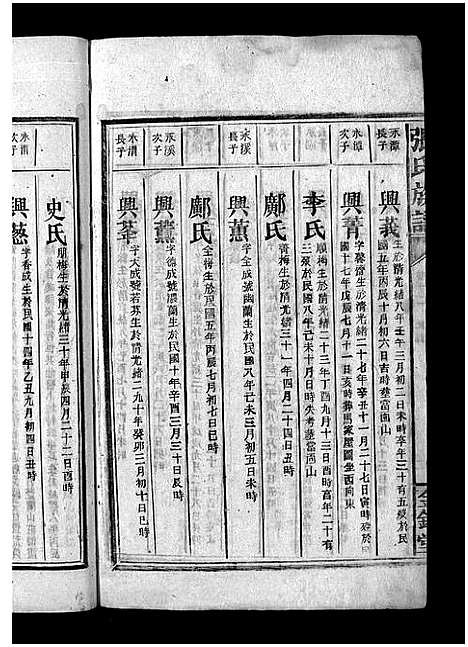 張氏族譜
永潭長子
興義
生於清光緒八年壬午三月初二日未時卒年三十有五歿於民
國五年丙辰十月初六日吉時塟當面山
永潭次子
興菁
字馨齋生於清光緒二十七年辛丑十一月二十七日寅時歿於民
國十七年戊辰七月十一日亥時葬馬家屋園坐西向東
李氏
順梅生於清光緒二十三年丁酉九月十三日酉時富年二十有
三歿於民國八年己未十月日時失考塟當面山
鄺氏
青梅生於清光緒三十一年四月二十四日丑時
永溪長子
興蕙
字全成號幽蘭生於民國八年己未三月初五日未時
鄺氏
全梅生於民國五年丙辰七月初七日巳時
永溪次子
興薰
字德成號農蘭生於民國十年辛酉三月三十日辰時
永清長子
興莑
字大成號若芬生於清光緒二十九年癸卯三月初十日巳時
史氏
朋梅生於清光緒三十年甲辰四月二十二日酉時
永清次子
興蒑
字香成生於民國十四年乙丑九月初四日丑時